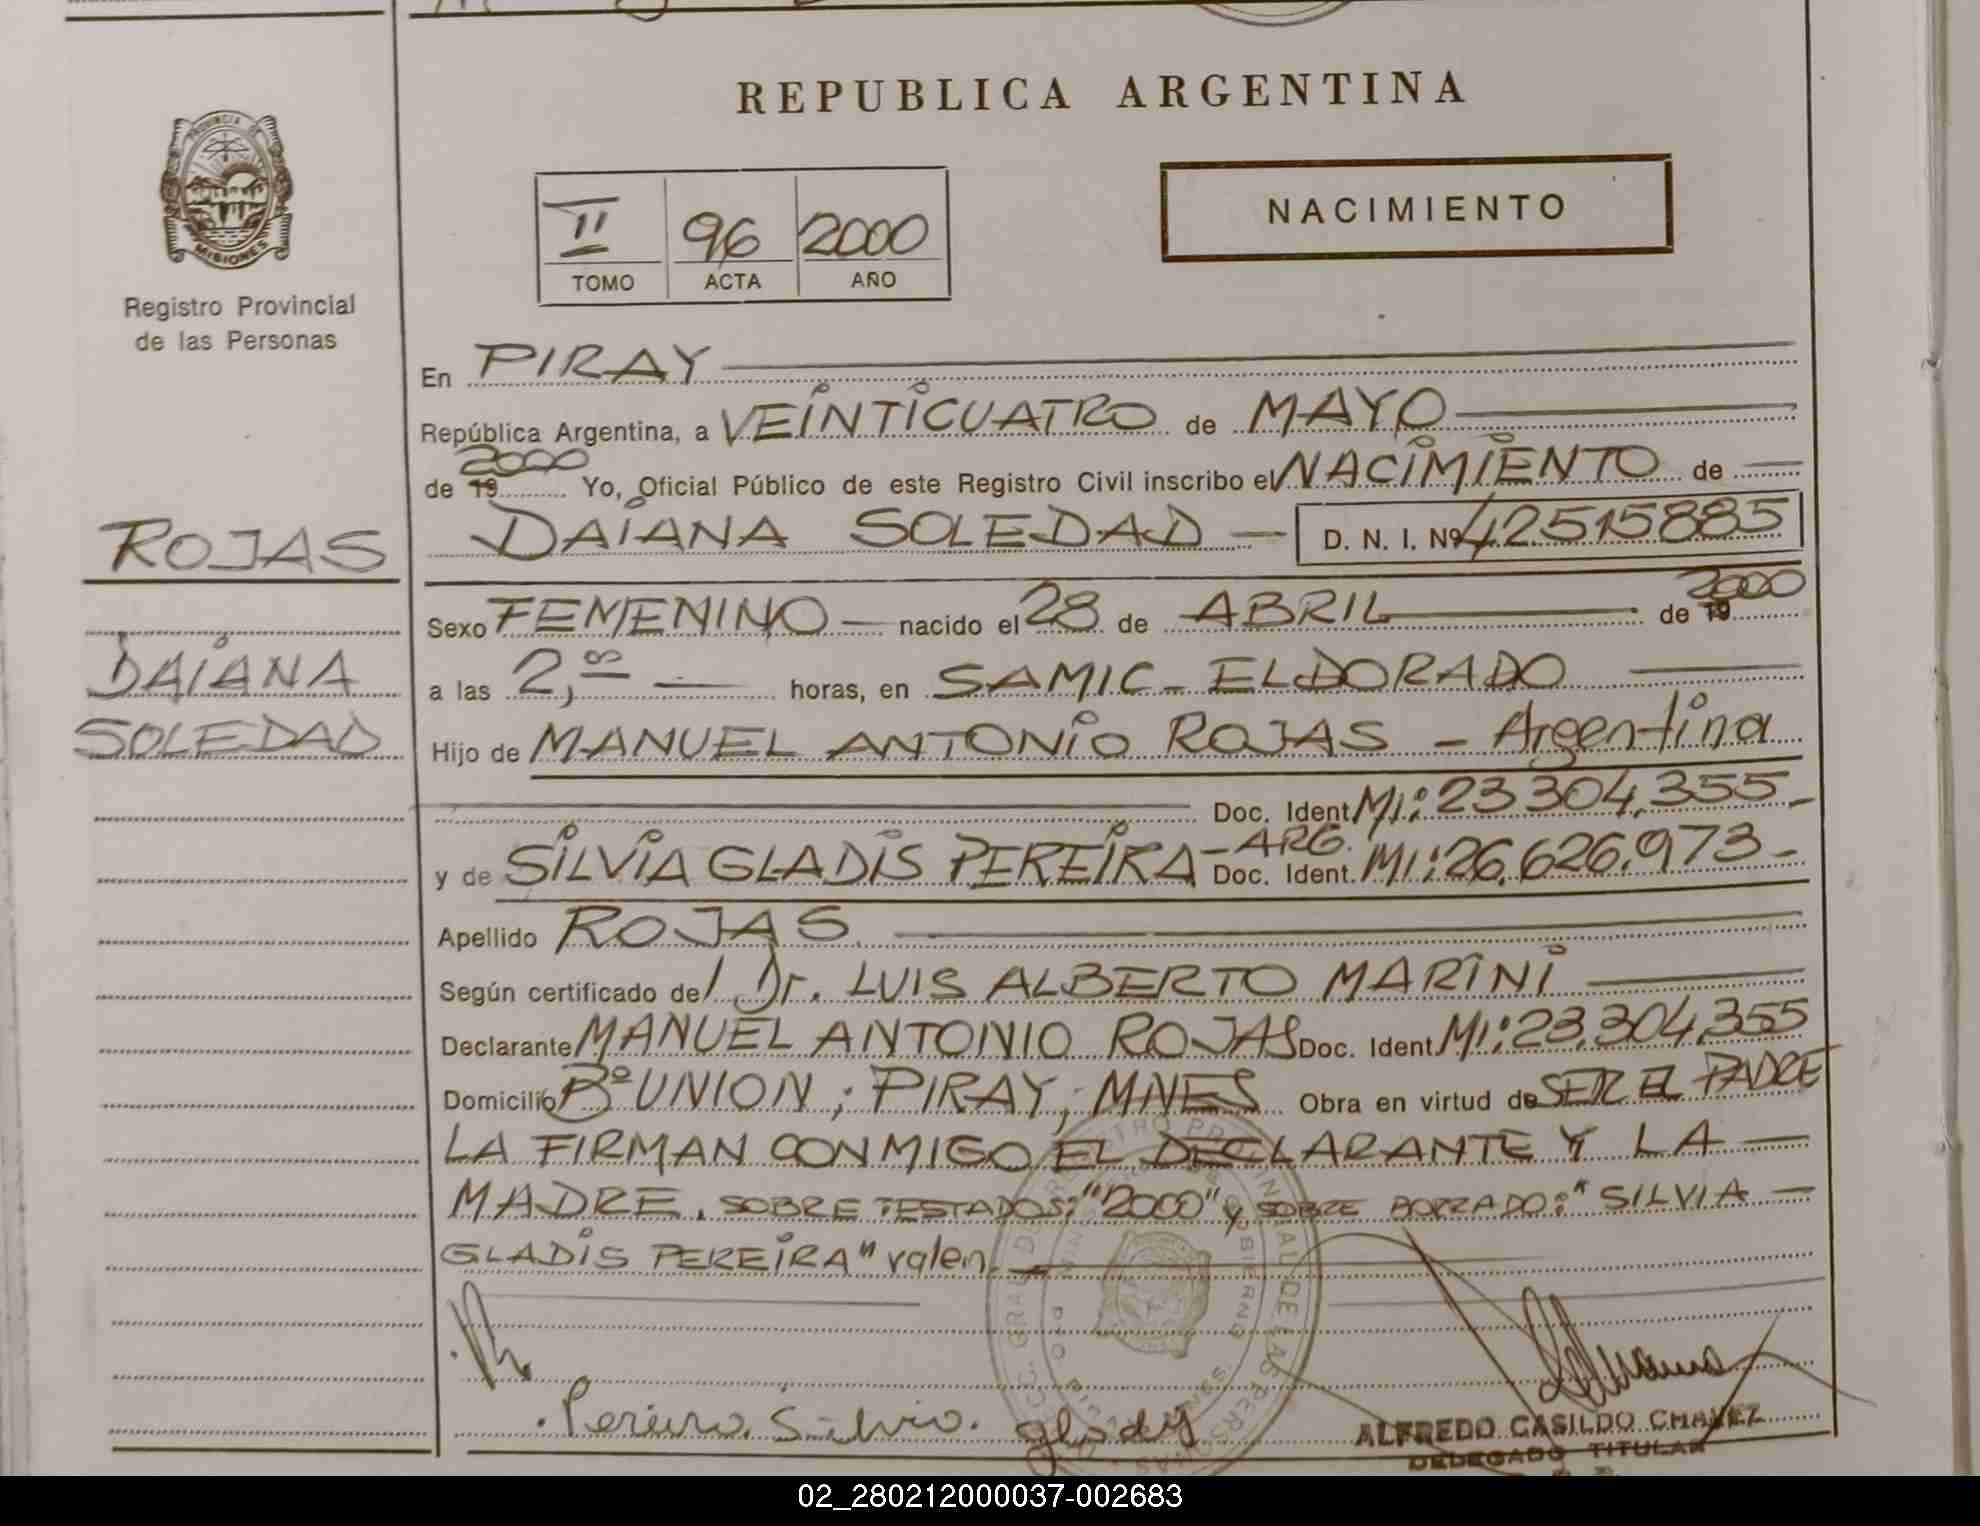 REPUBLICA ARGENTINA
PROVINCIA DE
MISIONES
Registro Provincial
de las Personas
II 96 2000
TOMO ACTA AÑO
NACIMIENTO
En PIRAY
República Argentina, a VEINTICUATRO de MAYO
de 19 2000 Yo, Oficial Público de este Registro Civil inscribo el NACIMIENTO de
ROJAS
DAIANA SOLEDAD — D. N. I. Nº 42515885
Sexo FEMENINO — nacido el 28 de ABRIL de 19 2000
DAIANA
SOLEDAD
a las 2,00 — horas, en SAMIC - ELDORADO
Hijo de MANUEL ANTONIO ROJAS - Argentina
Doc. Ident. MI: 23304.355-
y de SILVIA GLADIS PEREIRA - ARG. Doc. Ident. MI: 26.626.973-
Apellido ROJAS
Según certificado del Dr. LUIS ALBERTO MARINI
Declarante MANUEL ANTONIO ROJAS Doc. Ident MI: 23.304.355
Domicilio Bº UNION; PIRAY; MNES Obra en virtud de SER EL PADRE
LA FIRMAN CONMIGO EL DECLARANTE Y LA —
MADRE. SOBRE TESTADOS: "2000" y SOBRE BORRADO: "SILVIA —
GLADIS PEREIRA" valen.
Pereira Silvia gladys
ALFREDO CASILDO CHAVEZ
DELEGADO TITULAR
02_280212000037-002683